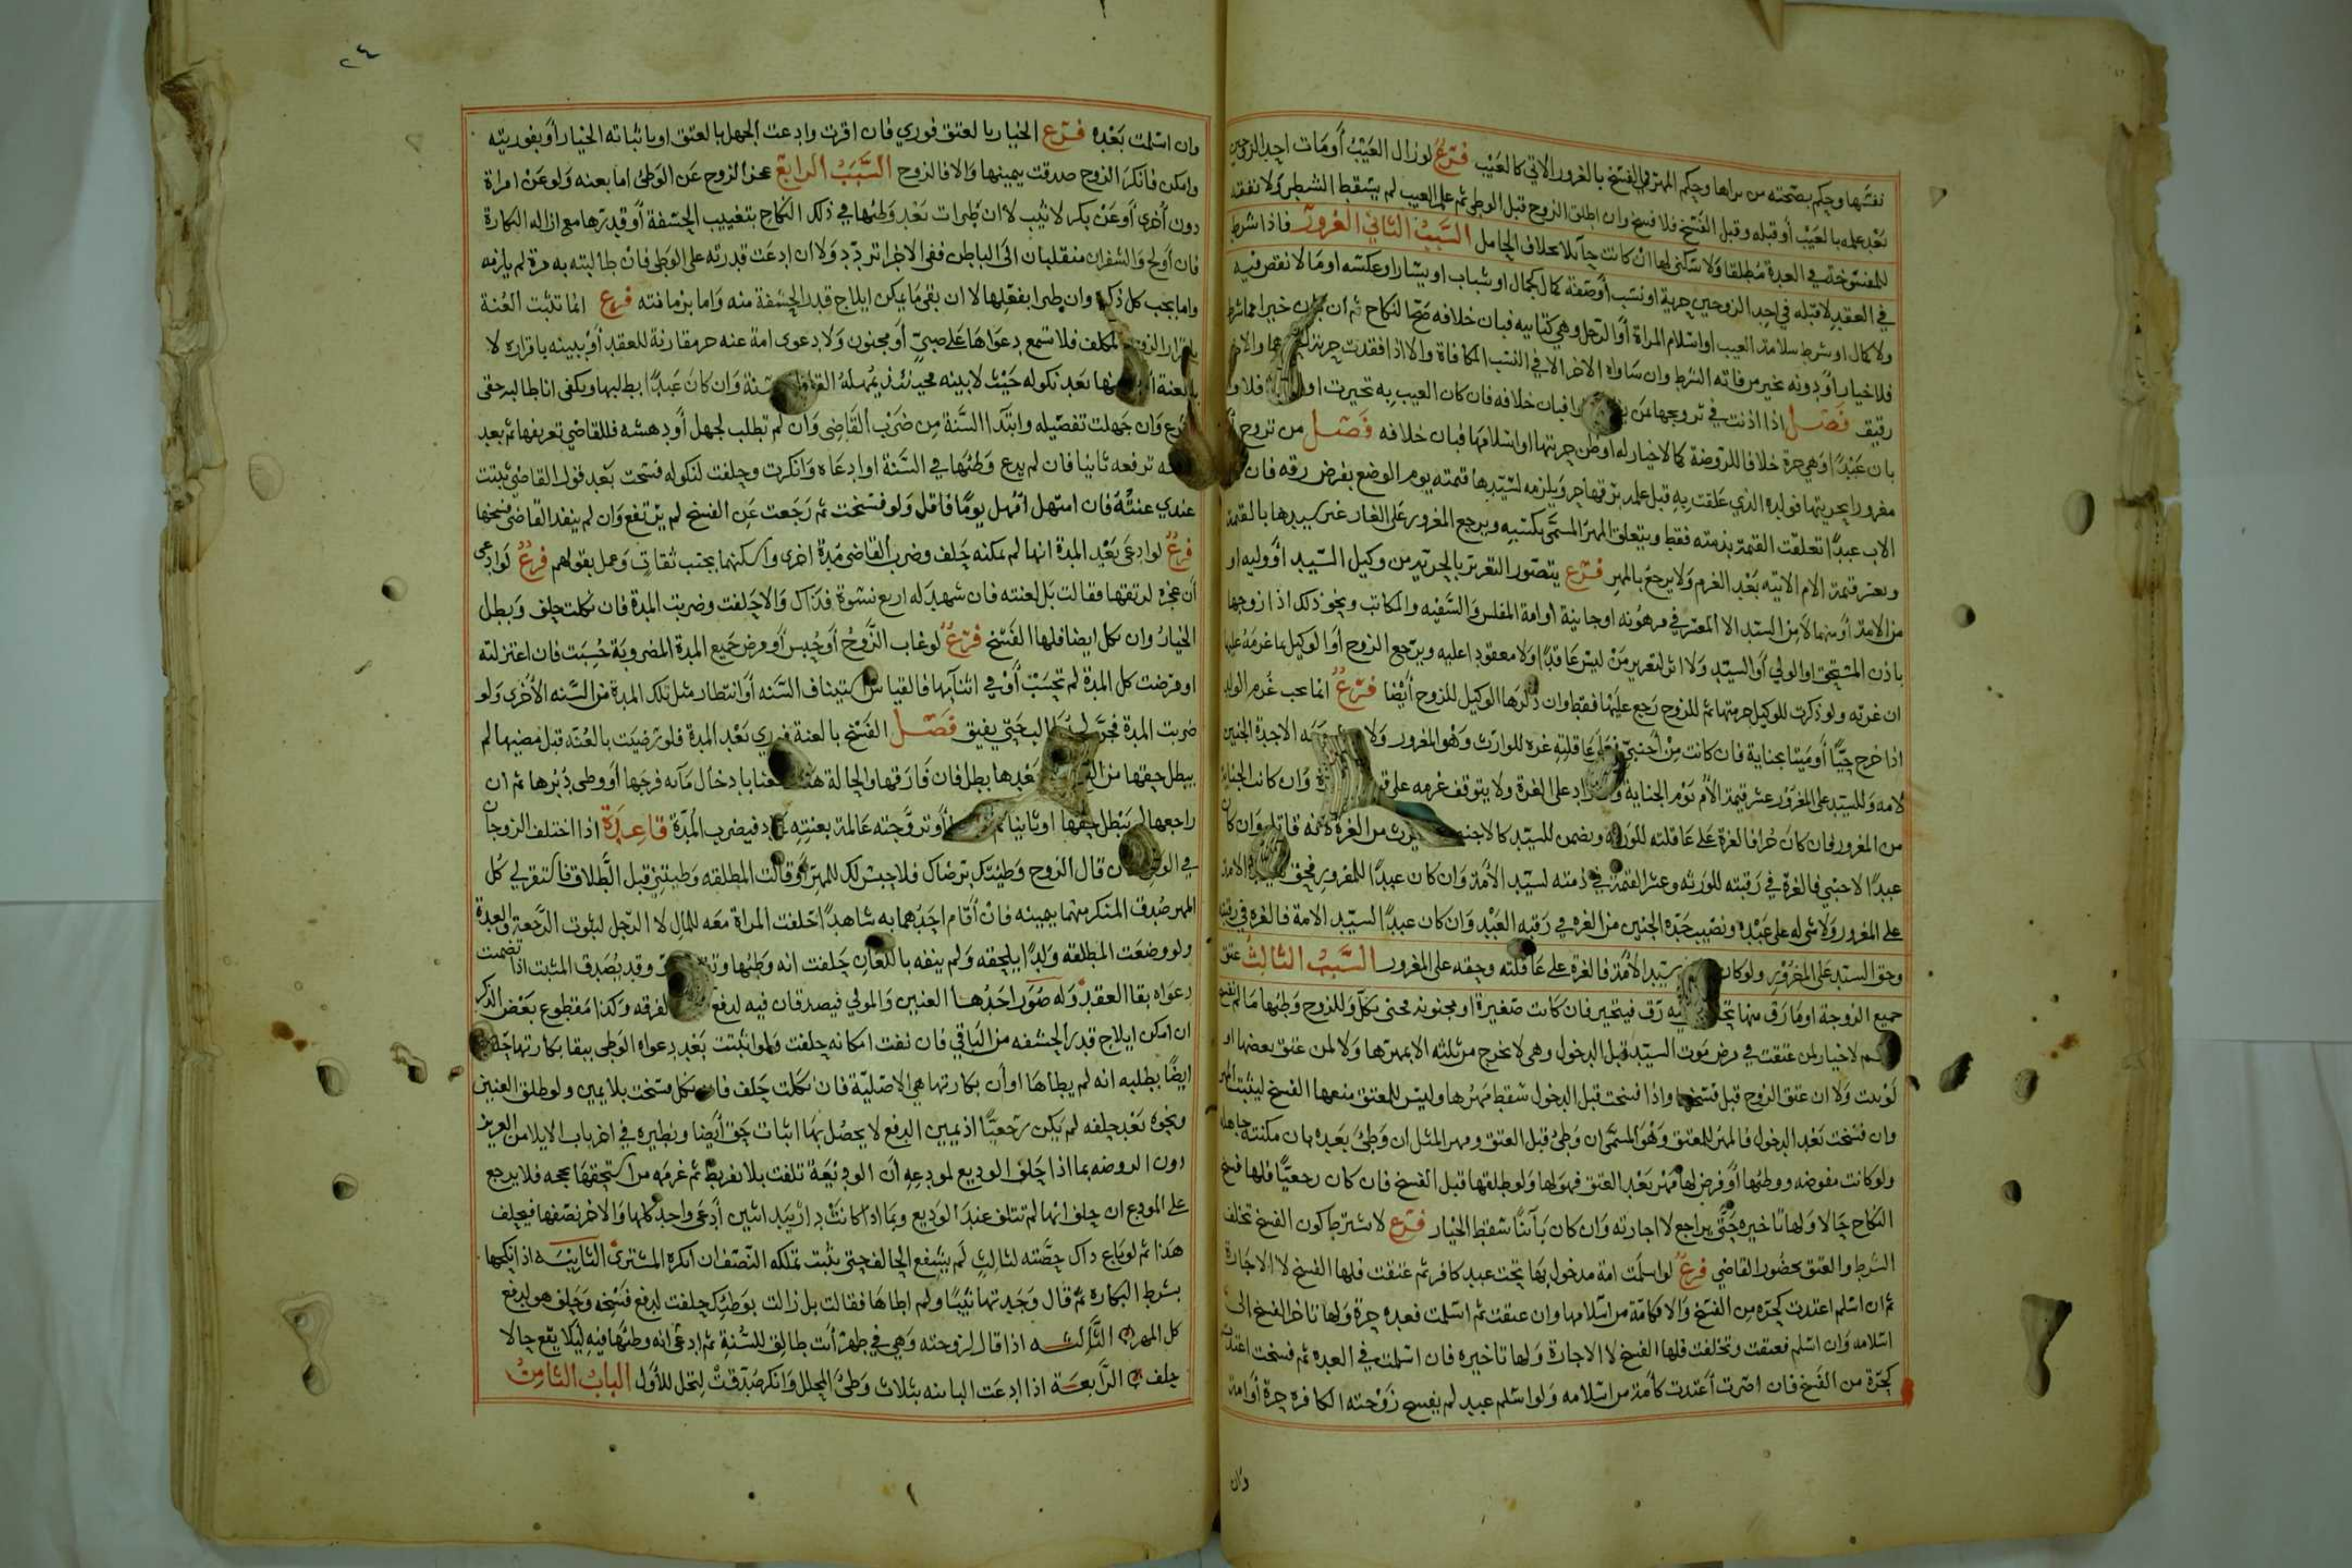 نفسها وحكم بصحته من براها وحكم المهر في الفسخ بالغرور الاتي كالعيب فرع لو زال العيب أو مات احد الزوجين
بعد علمه بالعيب أو قبله وقبل الفسخ فلا فسخ وان اطلق الزوج قبل الوطي ثم علم العيب لم يسقط الشطر ولا نفقة
للمفسوخة في العدة مطلقا ولا سكنى لها ان كانت حائلا بخلاف الحامل السبب الثاني الغرور فاذا شرط
في العقد لا قبله في احد الزوجين حرية او نسب أو صفة كمال كجمال او شباب او يسار او عكسه او ما لا نقص فيه
ولا كمال او شرط سلامة العيب او اسلام المراة أو الرجل وهي كتابيه فبان خلافه صح النكاح ثم ان بان خيرا مما شرط
فلا خيار أو دونه تخير من فاته الشرط وان ساواه الاخر الا في النسب المكافاة والا اذا فقدت حرية
رقيق فصل اذا اذنت في تزويجها لمن فبان خلافه فان كان العيب به تخيرت او فلا
بان عبدا وهي حرة خلافا للروضة كما لا خيار له لو ظن حريتها او اسلامها فبان خلافه فصل من تزوج
مغرورا بحريتها فولده الذي علقت به قبل علمه برقها حر ويلزمه لسيدها قيمته يوم الوضع بفرض رقه فان
الاب عبدا تعلقت القيمة بذمته فقط ويتعلق المهر المسمى بكسبه ويرجع المغرور على الغار غير سيدها بالقيمة
وبعشر قيمة الام الاتيه بعد الغرم ولا يرجع بالمهر فرع يتصور التغرير بالحرية من وكيل السيد أو وليه او
من الامة أو منهما لا من السيد الا المعسر في مرهونه او جانية او امة المفلس والسفيه والمكاتب ونحو ذلك اذا زوجها
باذن المستحق او الولي أو السيد ولا اثر لتغرير من ليس عاقدا ولا معقودا عليه ويرجع الزوج أو الوكيل بما غرمه عليها
ان غرته ولو ذكرت للوكيل حريتها ثم للزوج رجع عليها فقط وان ذكرها الوكيل للزوج أيضا فرع انما يجب غرم الولد
اذا خرج حيا أو ميتا بجناية فان كانت من أجنبي فعلى عاقلته غرة للوارث وهو المغرور ولا الا جدة الجنين
لامه وللسيد على المغرور عشر قيمة الأم يوم الجناية زاد على الغرة ولا يتوقف غرمه على وان كانت الجناية
من المغرور فان كان حرا فالغرة على عاقلته للورثه ويضمن للسيد كالاجنبي يرث من الغرة لانه قاتل وان كان
عبدا لاجنبي فالغرة في رقبته للورثه وعشر القيمة في ذمته لسيد الأمة وان كان عبدا للمغرور فحق سيد الامة
على المغرور ولا شي له على عبده ونصيب جدة الجنين من الغرة في رقبه العبد وان كان عبدا لسيد الامة فالغره في رقبته
وحق السيد على المغرور ولو كان سيد الأمة فالغرة على عاقلته وحقه على المغرور السبب الثالث عتق
جميع الزوجة او ما رق منها به رق فيتخير فان كانت صغيرة او مجنونه فحتى تكمل وللزوج وطئها ما لم تفسخ
لا خيار لمن عتقت في مرض موت السيد قبل الدخول وهي لا تخرج من ثلثه الا بمهرها ولا لمن عتق بعضها او
لوبدت ولا ان عتق الزوج قبل فسخها واذا فسخت قبل الدخول سقط مهرها وليس للمعتق منعها الفسخ ليثبت المهر
وان فسخت بعد الدخول فالمهر للمعتق وهو المسمى ان وطئ قبل العتق ومهر المثل ان وطئ بعده بان مكنته جاهلة
ولو كانت مفوضه ووطئها أو فرض لها مهر بعد العتق فهو لها ولو طلقها قبل الفسخ فان كان رجعيا فلها فسخ
النكاح حالا ولها تاخيره حتى يراجع لا اجازته وان كان بآئنا سقط الخيار فرع لا يشترط كون الفسخ بخلف
الشرط والعتق بحضور القاضي فرع لو اسلمت امة مدخول بها تحت عبد كافر ثم عتقت فلها الفسخ لا الاجازة
ثم ان اسلم اعتدت كحرة من الفسخ والا فكامة من اسلامها وان عتقت ثم اسلمت فعدة حرة ولها تاخر الفسخ الى
اسلامه وان اسلم فعتقت وتخلفت فلها الفسخ لا الاجازة ولها تاخيره فان اسلمت في العده ثم فسخت اعتدت
كحرة من الفسخ فان اصرت أعتدت كأمة من اسلامه ولو اسلم عبد لم يفسخ زوجته الكافره حرة أو امة
وان
٢٤
وان اسلمت بعده فرع الخيار بالعتق فوري فان اقرت وادعت الجهل بالعتق او باثباته الخيار أو بفوريته
وامكن فانكر الزوج صدقت بيمينها والا فالزوج السبب الرابع عجز الزوج عن الوطئ اما بعنه ولو عن امراة
دون أخرى أو عن بكر لا ثيب لا ان طرات بعد وطئها في ذلك النكاح بتغييب الحشفة أو قدرها مع ازالة البكارة
فان أولج والشفران منقلبان الى الباطن ففي الاجزا تردد ولا ان ادعت قدرته على الوطئ فان طالبته به مرة لم يلزمه
واما بجب كل ذكره وان طرا بفعلها لا ان بقي ما يمكن ايلاج قدر الحشفة منه واما بزمانته فرع انما تثبت العنة
باقرار الزوج المكلف فلا تسمع دعواها على صبي أو مجنون ولا دعوى امة عنه حر مقارنة للعقد أو ببينه باقراره لا
بالعنة أو منها بعد نكوله حيث لا بينه فحينئذ يمهله القاضي سنة وان كان عبدا بطلبها ويكفي انا طالبه حقي
وان جهلت تفصيله وابتدا السنة من ضرب القاضي وان لم تطلب لجهل أو دهشه فللقاضي تعريفها ثم بعد
ترفعه ثانيا فان لم يدع وطئها في السنة او ادعاه وانكرت وحلفت لنكوله فسخت بعد قول القاضي ثبتت
عندي عنته فان استمهل امهل يوما فاقل ولو فسخت ثم رجعت عن الفسخ لم يرتفع وان لم ينفذ القاضي فسخها
فرع لو ادعى بعد المدة انها لم تمكنه حلف وضرب القاضي مدة اخرى واسكنهما بجنب ثقات وعمل بقولهم فرع لو ادعى
أن عجزه لرتقها فقالت بل لعنته فان شهد له اربع نسوة فذاك والا حلفت وضربت المدة فان نكلت حلف وبطل
الخيار وان نكل ايضا فلها الفسخ فرع لو غاب الزوج أو حبس أو مرض جميع المدة المضروبة حسبت فان اعتزلته
او مرضت كل المدة لم تحسب أو في اثنآئها فالقياس استيناف السنه أو انتظار مثل تلك المدة من السنه الأخرى ولو
ضربت المدة فجن حتى يفيق فصل الفسخ بالعنة فوري بعد المدة فلو رضيت بالعنه قبل مضيها لم
يبطل حقها من الفسخ بعدها بطل فان فارقها والحالة هذه بادخال مآئه فرجها أو وطئ دبرها ثم ان
راجعها لم يبطل حقها او ثانيا أو تزوجته عالمة بعنته فيضرب المدة قاعدة اذا اختلف الزوجان
في الوطئ فان قال الزوج وطيئتك برضاك فلا حبس لك للمهر أو قالت المطلقه وطيتني قبل الطلاق فاستقر لي كل
المهر صدق المنكر منهما بيمينه فان أقام احدهما به شاهدا احلفت المراة معه للمال لا الرجل لثبوت الرجعة والعدة
ولو وضعت المطلقه ولدا يلحقه ولم ينفه باللعان حلفت انه وطئها وقد يصدق المثبت اذا تضمنت
دعواه بقا العقد وله صور احدها العنين والمولي فيصدقان فيه لدفع الفرقه وكذا مقطوع بعض الذكر
ان امكن ايلاج قدر الحشفه من الباقي فان نفت امكانه حلفت ولو اثبتت بعد دعواه الوطئ بقا بكارتها حلفت
ايضا بطلبه انه لم يطاها او أن بكارتها هي الاصلية فان نكلت حلف فان نكل فسخت بلا يمين ولو طلق العنين
ونحوه بعد حلفه لم يكن رجعيا اذ يمين الدفع لا يحصل بها اثبات حق أيضا ونظيره في اخر باب الايلا من العزيز
دون الروضه بما اذا حلف الوديع لمودعه أن الوديعة تلفت بلا تفريط ثم غرمه من استحقها بحجه فلا يرجع
على المودع ان حلف انها لم تتلف عند الوديع وبما اذا كانت دار بيد اثنين ادعى واحد كلها والاخر نصفها فيحلف
هذا ثم لو باع ذاك حصته لثالث لم يشفع الحالف حتى تثبت تملكه النصف ان انكره المشتري الثانية اذا نكحها
بشرط البكاره ثم قال وجدتها ثيبا ولم اطاها فقالت بل زالت بوطئك حلفت لدفع فسخه وحلف هو لدفع
كل المهر الثالثه اذا قال لزوجته وهي في طهر أنت طالق للسنة ثم ادعى انه وطئها فيه لئلا يقع حالا
حلف الرابعة اذا ادعت البائنه بثلاث وطئ المحلل وانكر صدقت لتحل للأول الباب الثامن